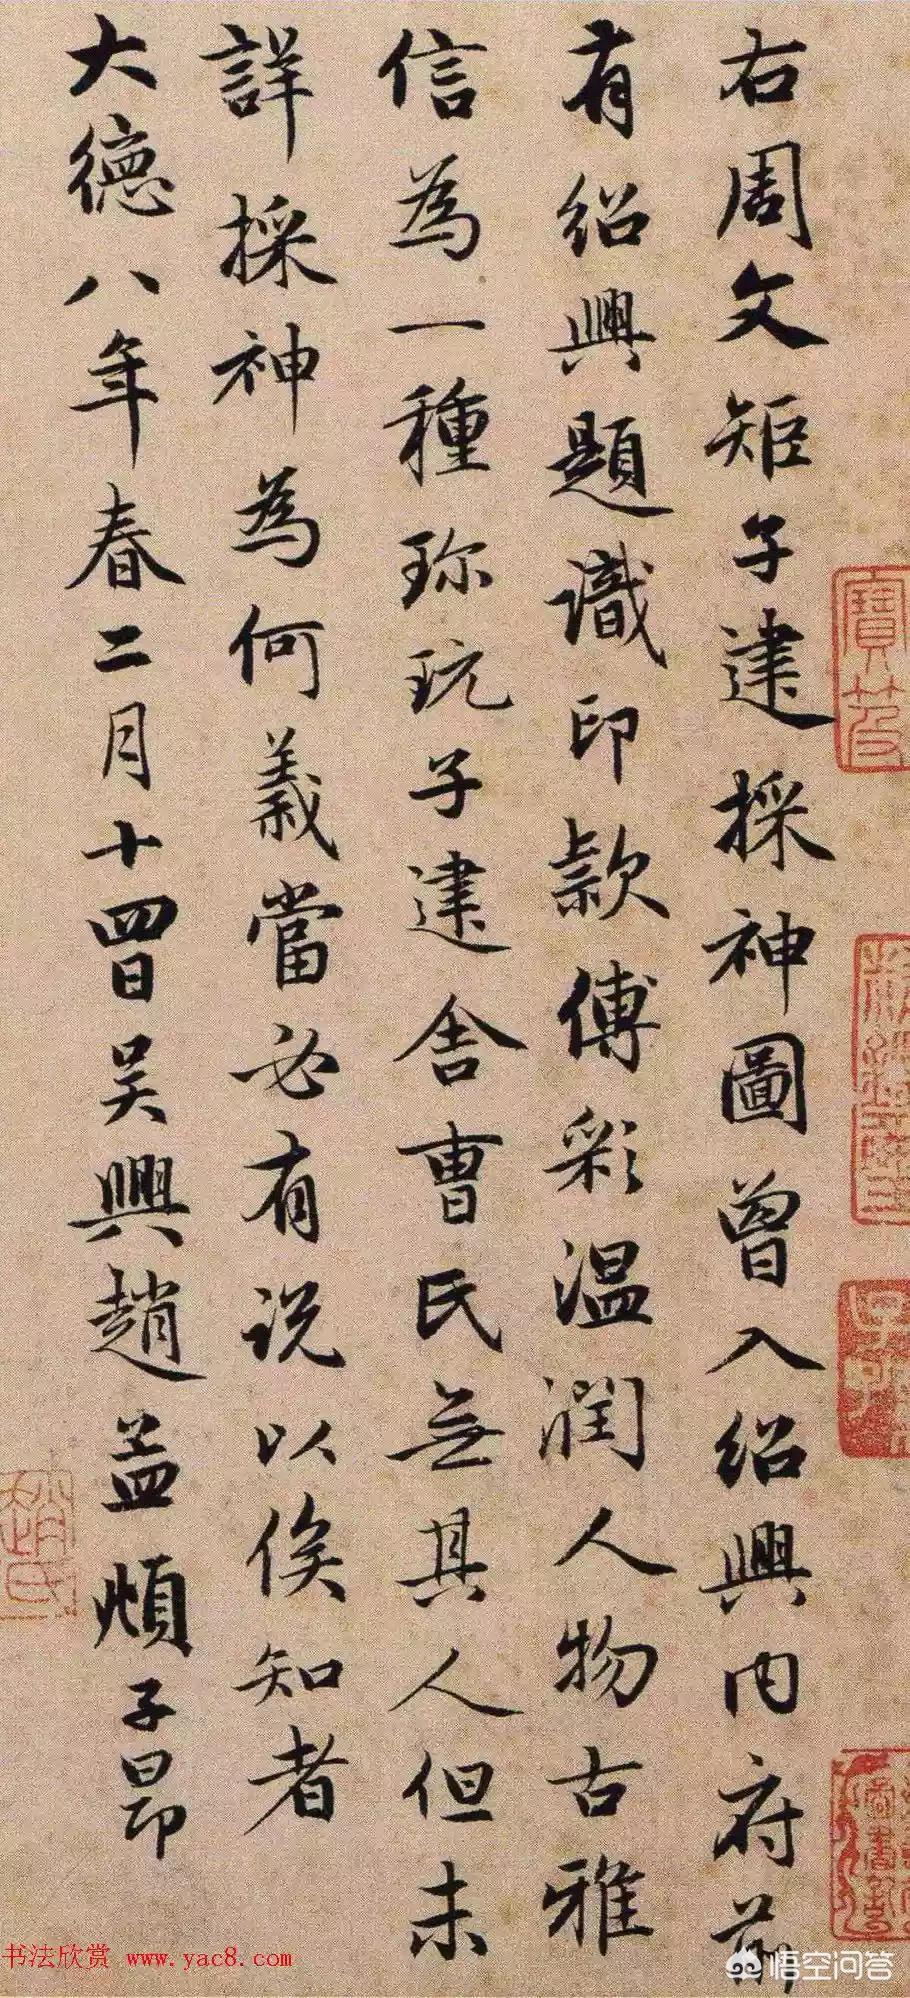 右周文矩子建採神圖曾入紹興內府前
有紹興題識印款傅彩温潤人物古雅
信為一種珎玩子建舍曹氏無其人但未
詳採神為何義當必有说以俟知者
大德八年春二月十四日吴興趙孟頫子昂
寶笈
子孫
趙氏
书法欣赏 www.yac8.com
悟空问答